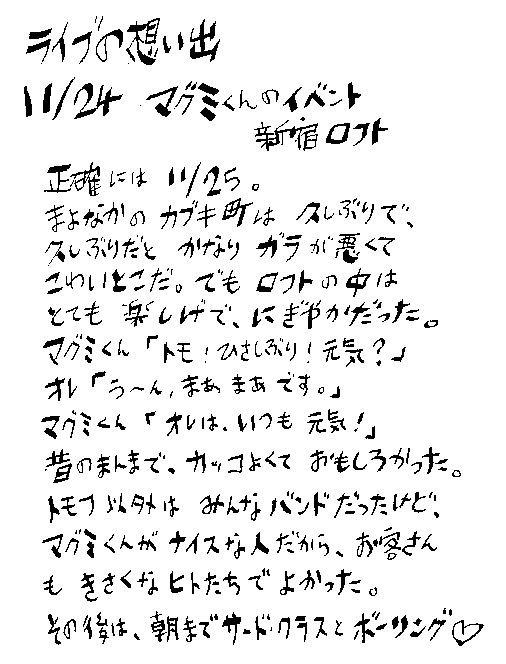 ライブの想い出
11/24 マグミくんのイベント
新宿ロフト
正確には 11/25。
まよなかの カブキ町は 久しぶりで、
久しぶりだと かなり ガラが悪くて
こわいとこだ。でも ロフトの中は
とても 楽しげで、にぎやかだった。
マグミくん「トモ!ひさしぶり!元気?」
オレ「う〜ん、まぁ まぁ です。」
マグミくん「オレは、いつも 元気!」
昔のまんまで、カッコよくて おもしろかった。
トモフ以外は みんな バンドだったけど、
マグミくんが ナイスな人だから、お客さん
も きさくな ヒトたちで よかった。
その後は、朝まで サード・クラスと ボーリング♡